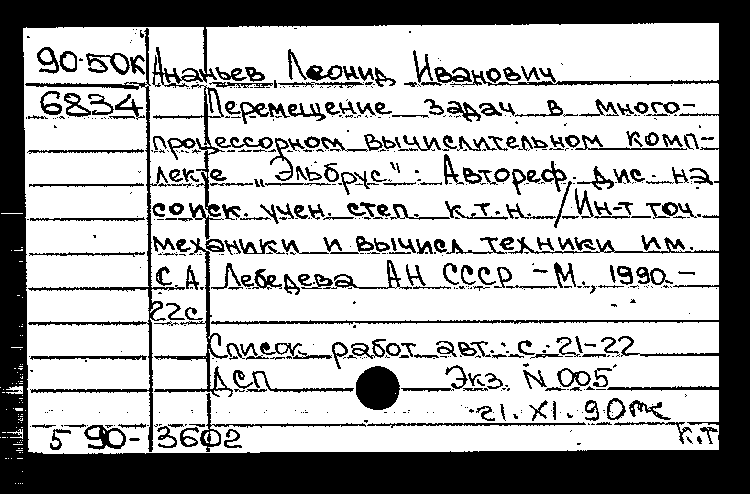 90-50К Ананьев, Леонид Иванович
6834 Перемещение задач в много-
процессорном вычислительном комп-
лекте „Эльбрус": Автореф. дис. на
соиск. учен. степ. к.т.н. /Ин-т точ.
механики и вычисл. техники им.
С.А. Лебедева АН СССР - М., 1990. -
22с.
Список работ авт.: с. 21-22
ДСП Экз. N 005
21. XI. 90
5 90- 13602 к.т